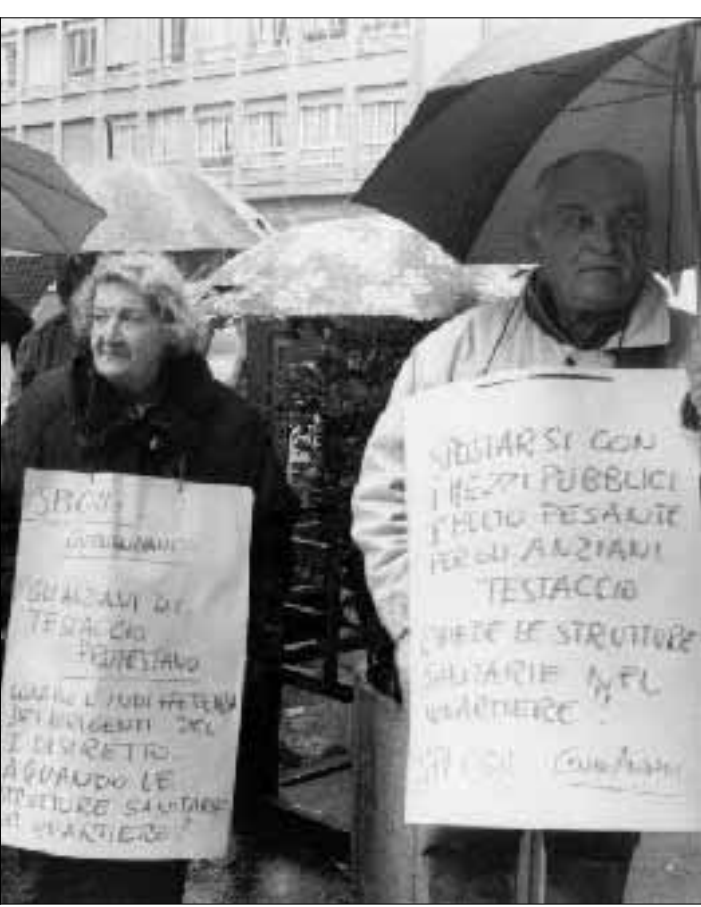 GLI ANZIANI DI
TESTACCIO
PROTESTANO
CONTRO L'INDIFFERENZA
DEI DIRIGENTI DEL
I DISTRETTO
A QUANDO LE
STRUTTURE SANITARIE
QUARTIERE?
SPOSTARSI CON
I MEZZI PUBBLICI
È MOLTO PESANTE
PER GLI ANZIANI
TESTACCIO
CHIEDE LE STRUTTURE
SANITARIE NEL
QUARTIERE